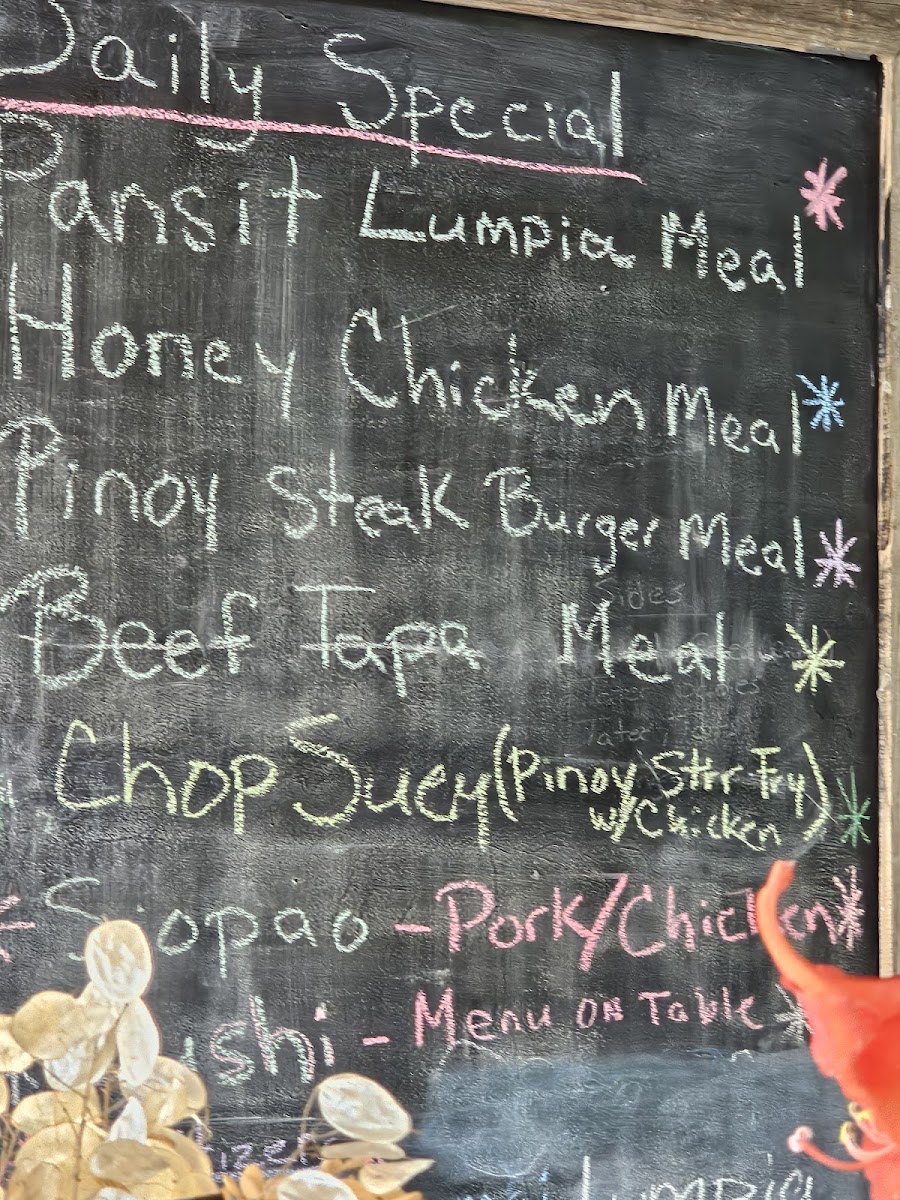 Daily Special
Pansit Lumpia Meal
Honey Chicken Meal
Pinoy Steak Burger Meal
Sides
Beef Tapa Meal
Chop Suey (Pinoy Stir Fry
w/Chicken)
Siopao - Pork/Chicken
ushi - Menu on Table
Lumpia